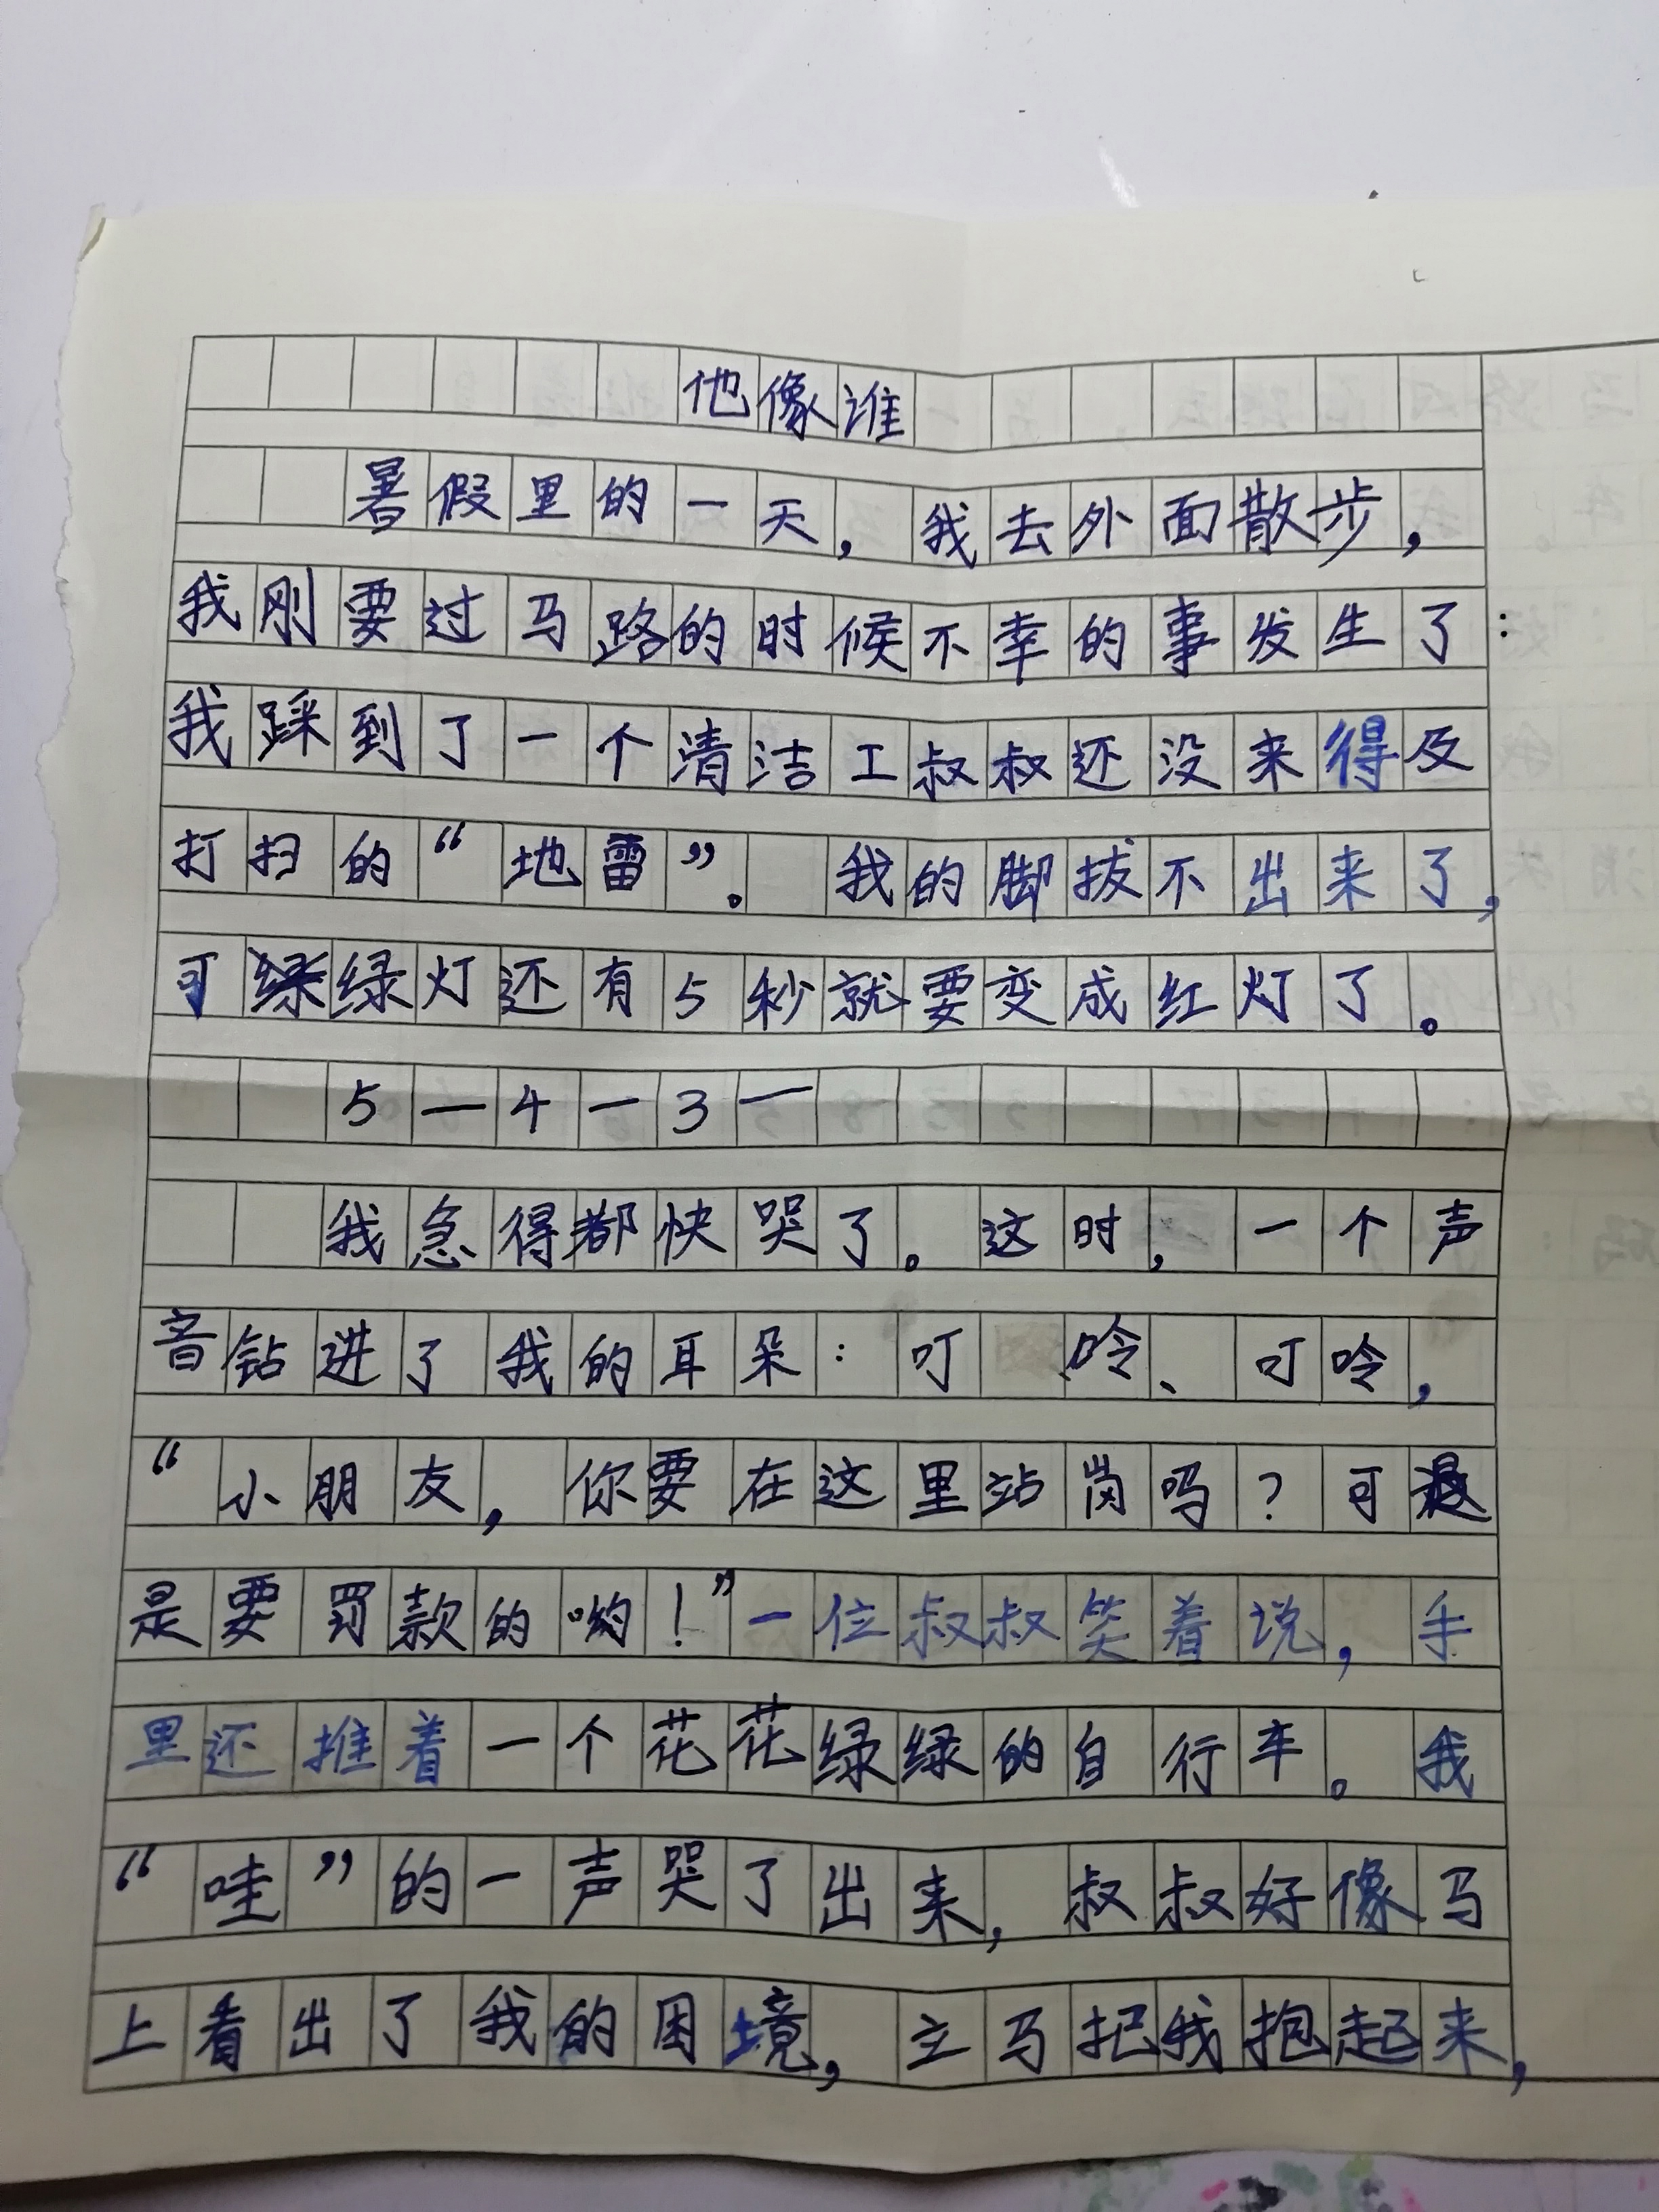 他像谁
暑假里的一天，我去外面散步，
我刚要过马路的时候不幸的事发生了：
我踩到了一个清洁工叔叔还没来得及
打扫的“地雷”。我的脚拔不出来了，
可绿灯还有5秒就要变成红灯了。
5—4—3—
我急得都快哭了。这时，一个声
音钻进了我的耳朵：叮呤、叮呤，
“小朋友，你要在这里站岗吗？可
是要罚款的哟！”一位叔叔笑着说，手
里还推着一个花花绿绿的自行车。我
“哇”的一声哭了出来，叔叔好像马
上看出了我的困境，立马把我抱起来，